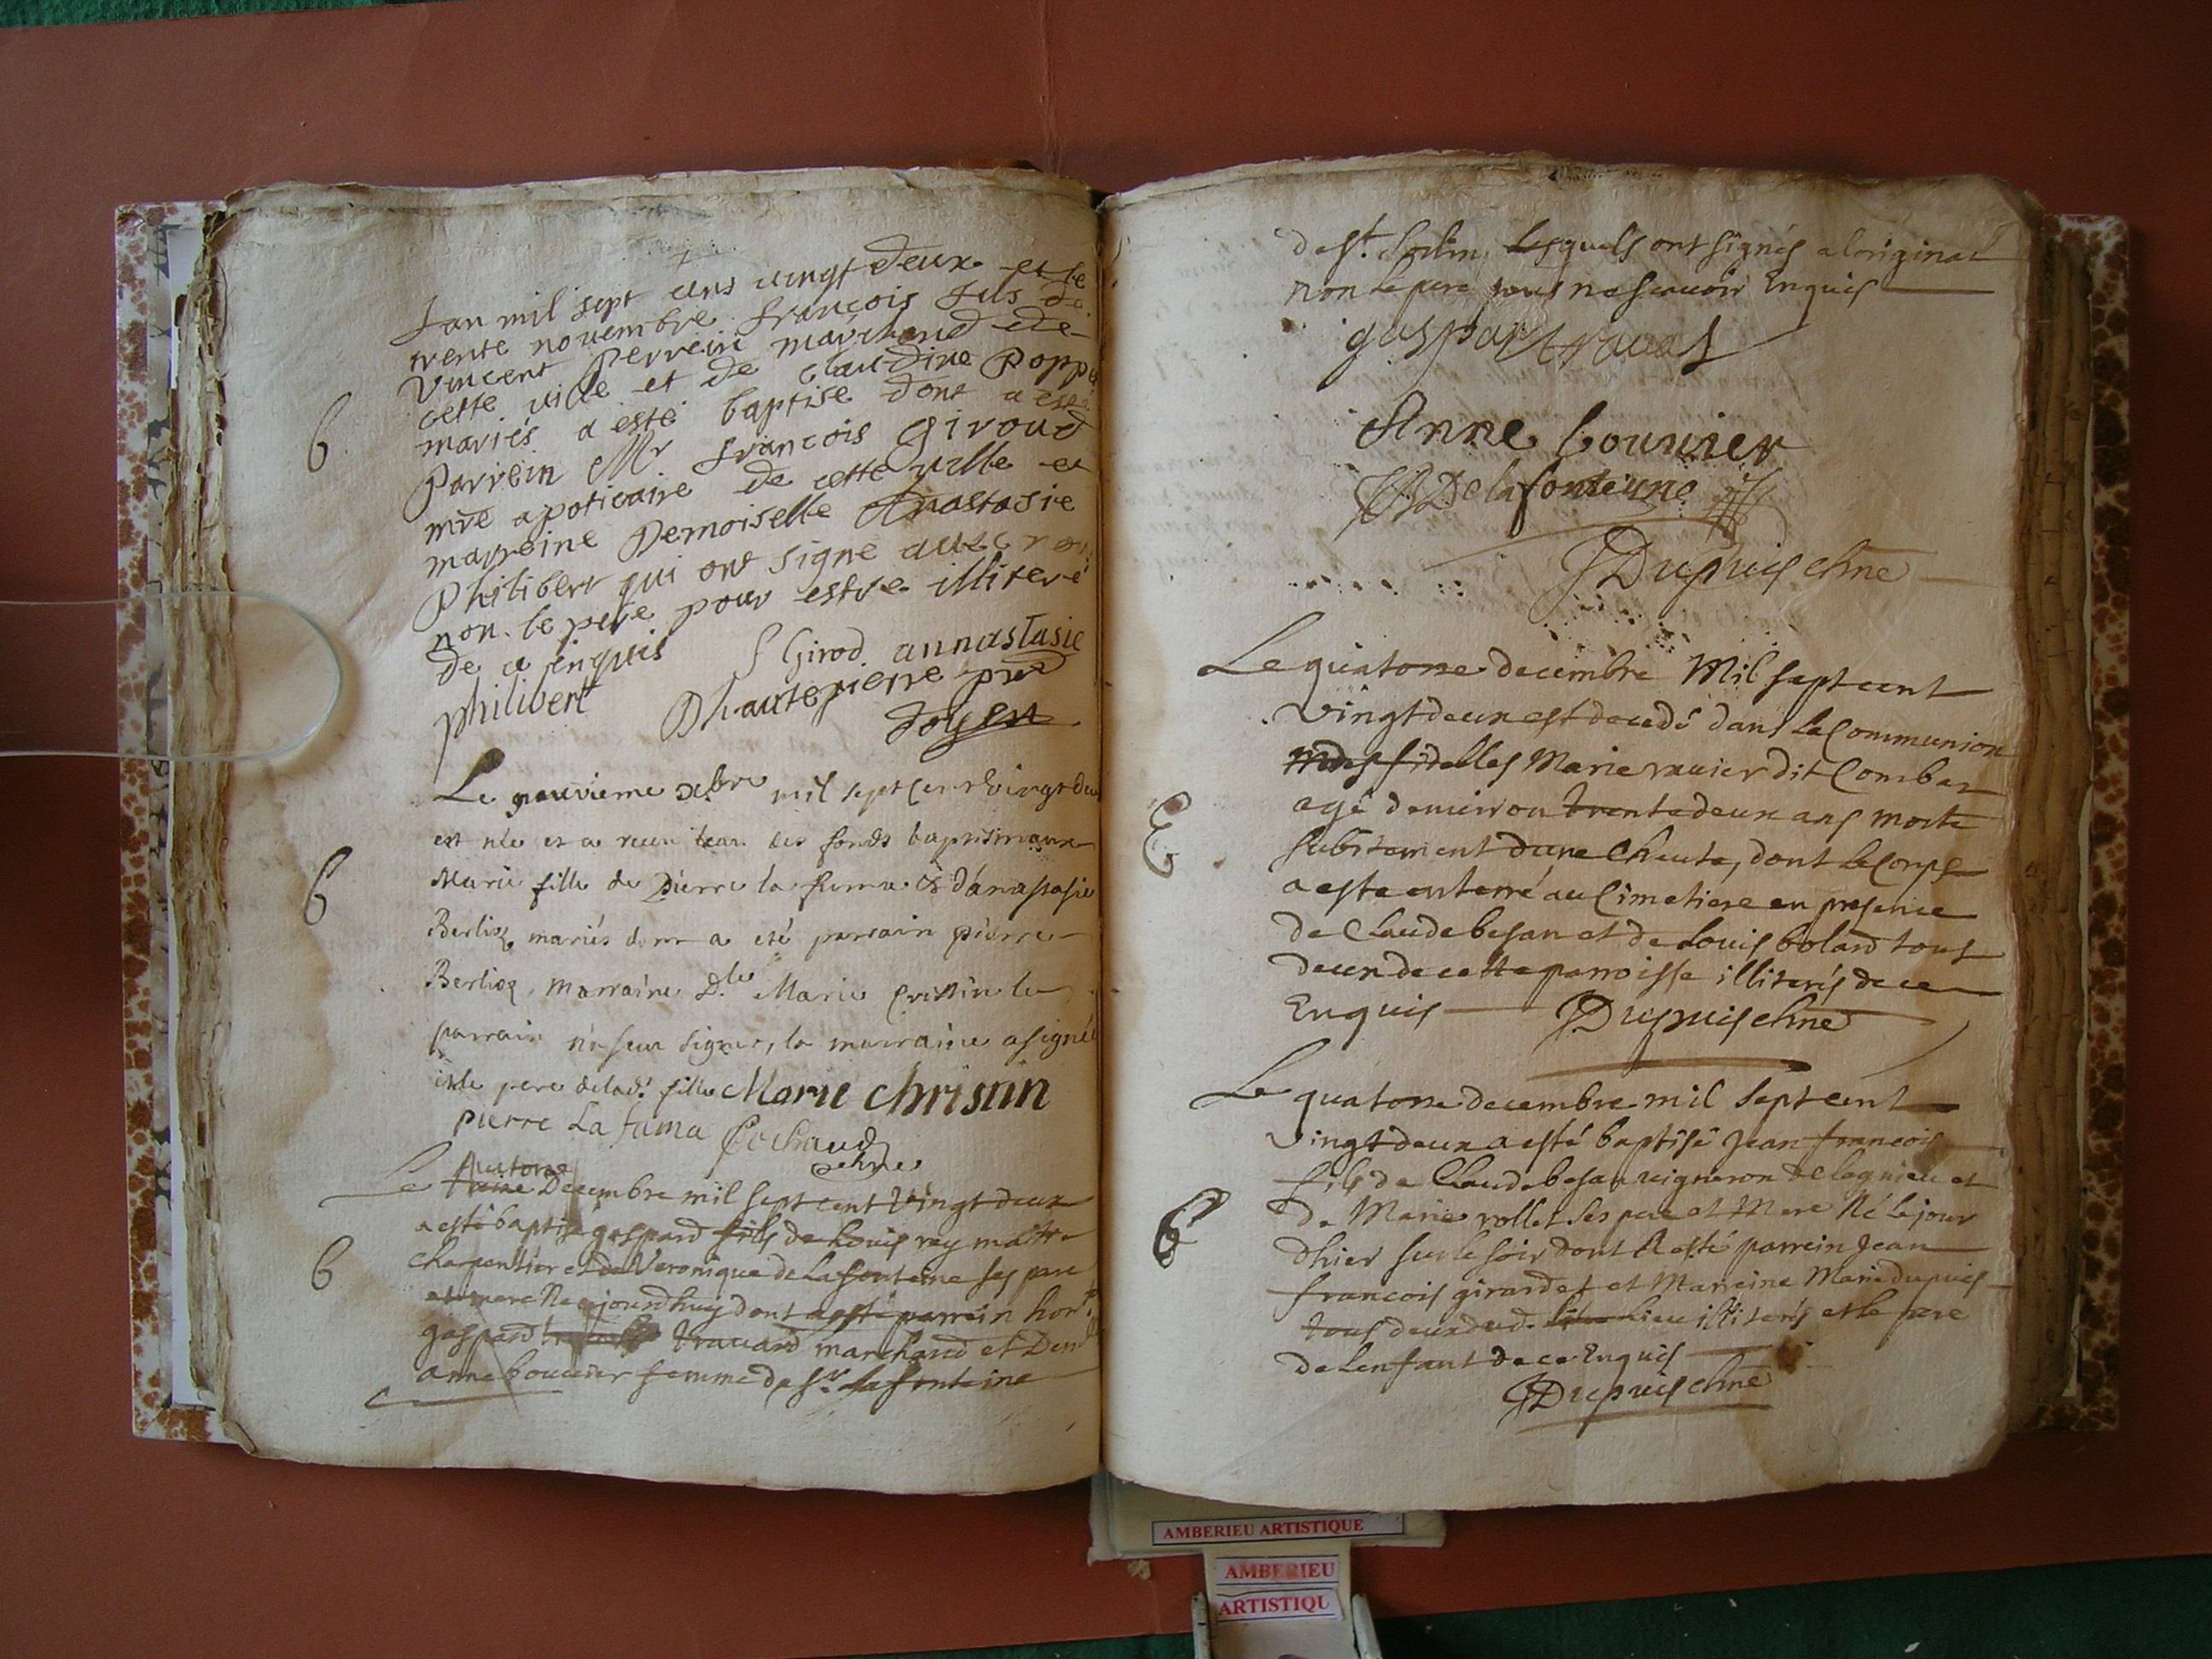 Lan mil sept cens vingt deux et le
trente novembre françois fils de
Vincent Perrein marchand de
cette ville et de claudine Popp
mariés a esté baptise dont a esté
B
Parrein Mr françois Giroud
mre apoticaire de cette ville et
marreine Demoiselle Anastasie
Philibert qui ont signe avec
non le pere pour estre illiteré
de ce enquis f Girod annastasie
philibert Dhautepierre pre
doyen
Le neuvieme xbre mil sept cent vingt deux
est née et a receu leau des fonds baptismaux
B
Marie fille de Pierre la fuma & d'anastasie
Berlioz mariés dont a été parrain pierre
Berlioz, marraine Dlle Marie Cristin le
parrain n'a seu signer, la marraine a signée
et le pere de lad. fille Marie christin
pierre La fuma Cochaud
chne
Le quatorze
treize Decembre mil sept cent vingt deux
a esté baptisé gaspard fils de Louis rey maitre
B
charpentier et de Veronique de Lafonteine ses pere
et mere Né ajourdhuy dont a esté parrein hon
gaspard travard marchand et Dem
anne bouvier femme de Sr. Lafonteine
de St. lesquels ont signés aloriginal
non le pere pour ne scavoir Enquis
gaspar travas
Anne bouvier
Delafonteine
JDupuis chne
Le quatorze decembre Mil sept cent
vingt deux est decedé dans La Communion
des fidelles Marie ravier dit Combet
agé denviron trente deux ans morte
E
subitement dune Cheute, dont Le Corps
a esté enterré au Cimetiere en presence
de Claude besan et de Louis bolard tous
deux de cette parroisse illiterés de ce
Enquis JDupuis chne
Le quatorze decembre mil sept cent
vingt deux a esté baptisé Jean francois
fils de Claude besan vigneron de lagnieu et
de Marie rollet ses pere et Mere Né Le jour
B
dhier sur le soir dont a esté parrein Jean
francois girardet et Marreine Marie dupuis
tous deux dud. lieu illiterés et le pere
de Lenfant de ce Enquis
JDupuis chne
AMBERIEU ARTISTIQUE
AMBERIEU
ARTISTIQU